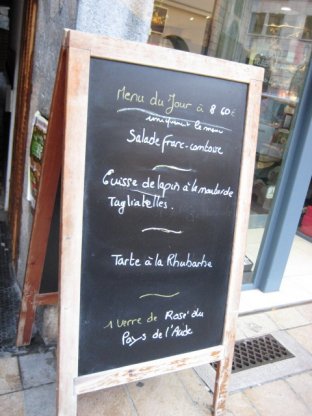 Menu du Jour à 8 60€
uniquement le menu
Salade franc-comtoise
Cuisse de lapin à la moutarde
Tagliatelles.
Tarte à la Rhubarbe
1 verre de Rosé du
Pays de l'Aude